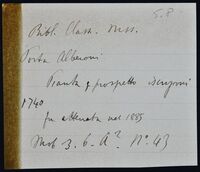 S. P.
Bibl. Class. Mss.
Porta Alberoni
Pianta e prospetto
1740
fu atterrata nel 1885
Mob. 3. 6. A² N° 43